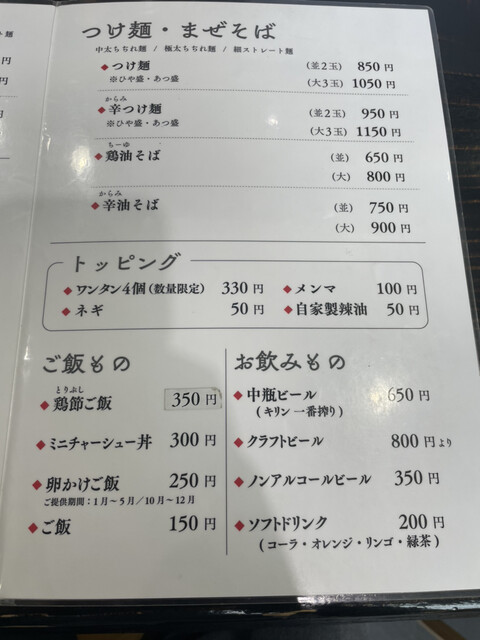 つけ麺・まぜそば
中太ちぢれ麺 / 極太ちぢれ麺 / 細ストレート麺
◆つけ麺 (並2玉) 850円
※ひや盛・あつ盛 (大3玉) 1050円
からみ
◆辛つけ麺 (並2玉) 950円
※ひや盛・あつ盛 (大3玉) 1150円
ちーゆ
◆鶏油そば (並) 650円
(大) 800円
からみ
◆辛油そば (並) 750円
(大) 900円
トッピング
◆ワンタン4個(数量限定) 330円 ◆メンマ 100円
◆ネギ 50円 ◆自家製辣油 50円
ご飯もの
とりぶし
◆鶏節ご飯 350円
◆ミニチャーシュー丼 300円
◆卵かけご飯 250円
ご提供期間:1月〜5月/10月〜12月
◆ご飯 150円
お飲みもの
◆中瓶ビール 650円
(キリン一番搾り)
◆クラフトビール 800円より
◆ノンアルコールビール 350円
◆ソフトドリンク 200円
(コーラ・オレンジ・リンゴ・緑茶)